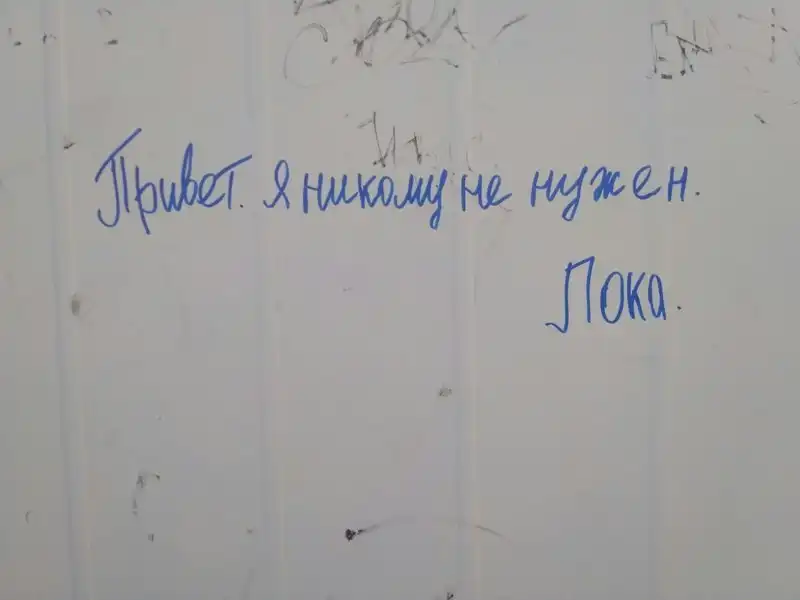 Привет. я никому не нужен.
Пока.